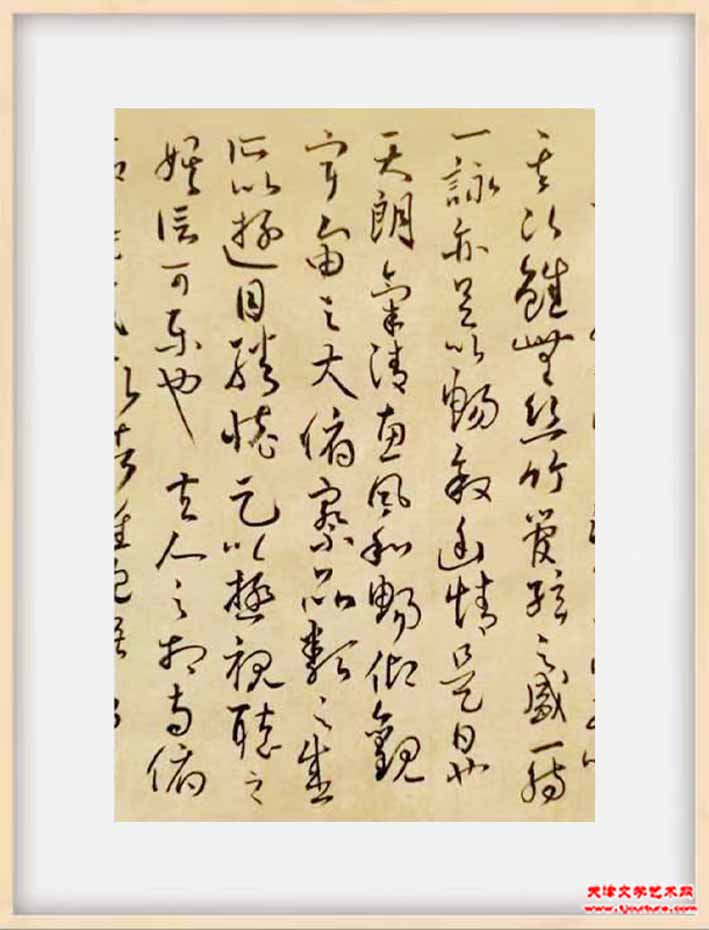 其次雖無絲竹管弦之盛一觴
一詠亦足以暢敘幽情是日也
天朗氣清惠風和暢仰觀
宇宙之大俯察品類之盛
所以遊目騁懷足以極視聽之
娛信可樂也夫人之相與俯
天津文学艺术网